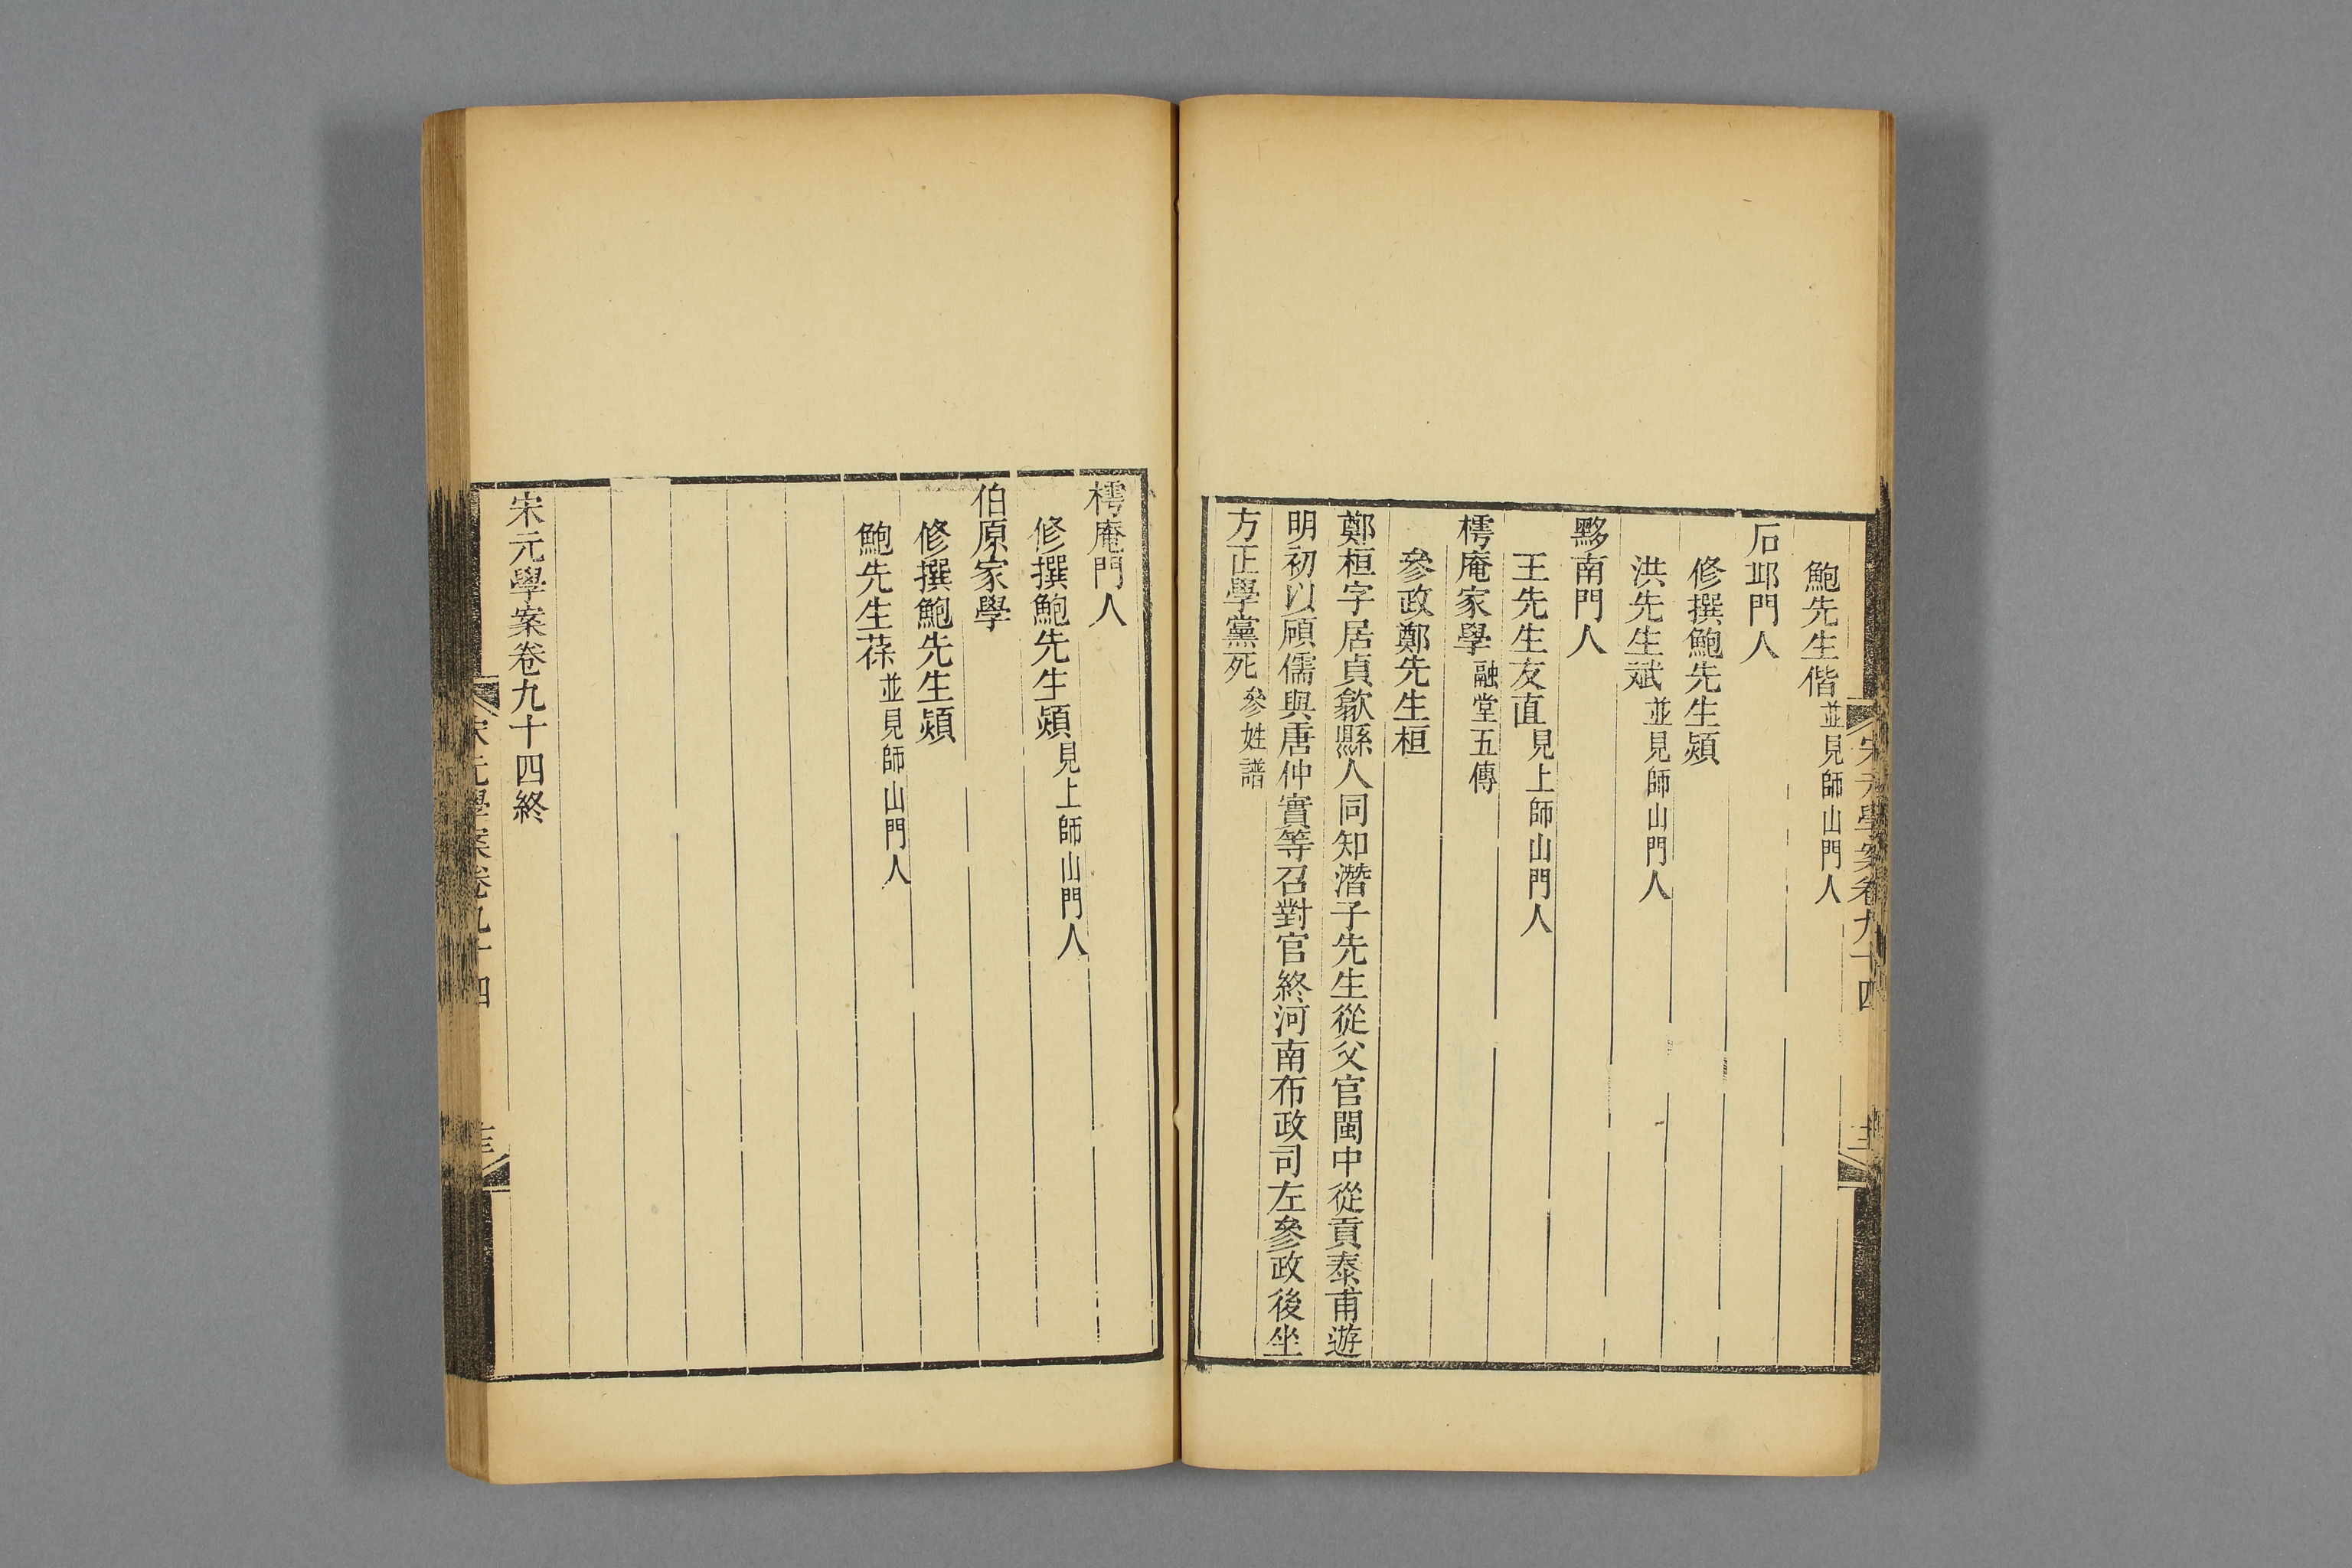 鮑先生偕並見師山門人
石邱門人
修撰鮑先生熲
洪先生斌並見師山門人
黟南門人
王先生友直見上師山門人
樗庵家學融堂五傳
參政鄭先生桓
鄭桓字居貞歙縣人同知潛子先生從父官閩中從貢泰甫遊
明初以碩儒與唐仲實等召對官終河南布政司左參政後坐
方正學黨死參姓譜
樗庵門人
修撰鮑先生熲見上師山門人
伯原家學
修撰鮑先生熲
鮑先生葆並見師山門人
宋元學案卷九十四終
宋元學案卷九十四